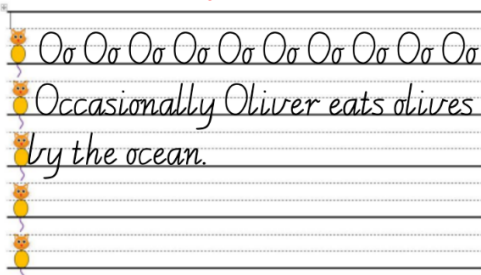 Oo Oo Oo Oo Oo Oo Oo Oo Oo Oo
Occasionally Oliver eats olives
by the ocean.